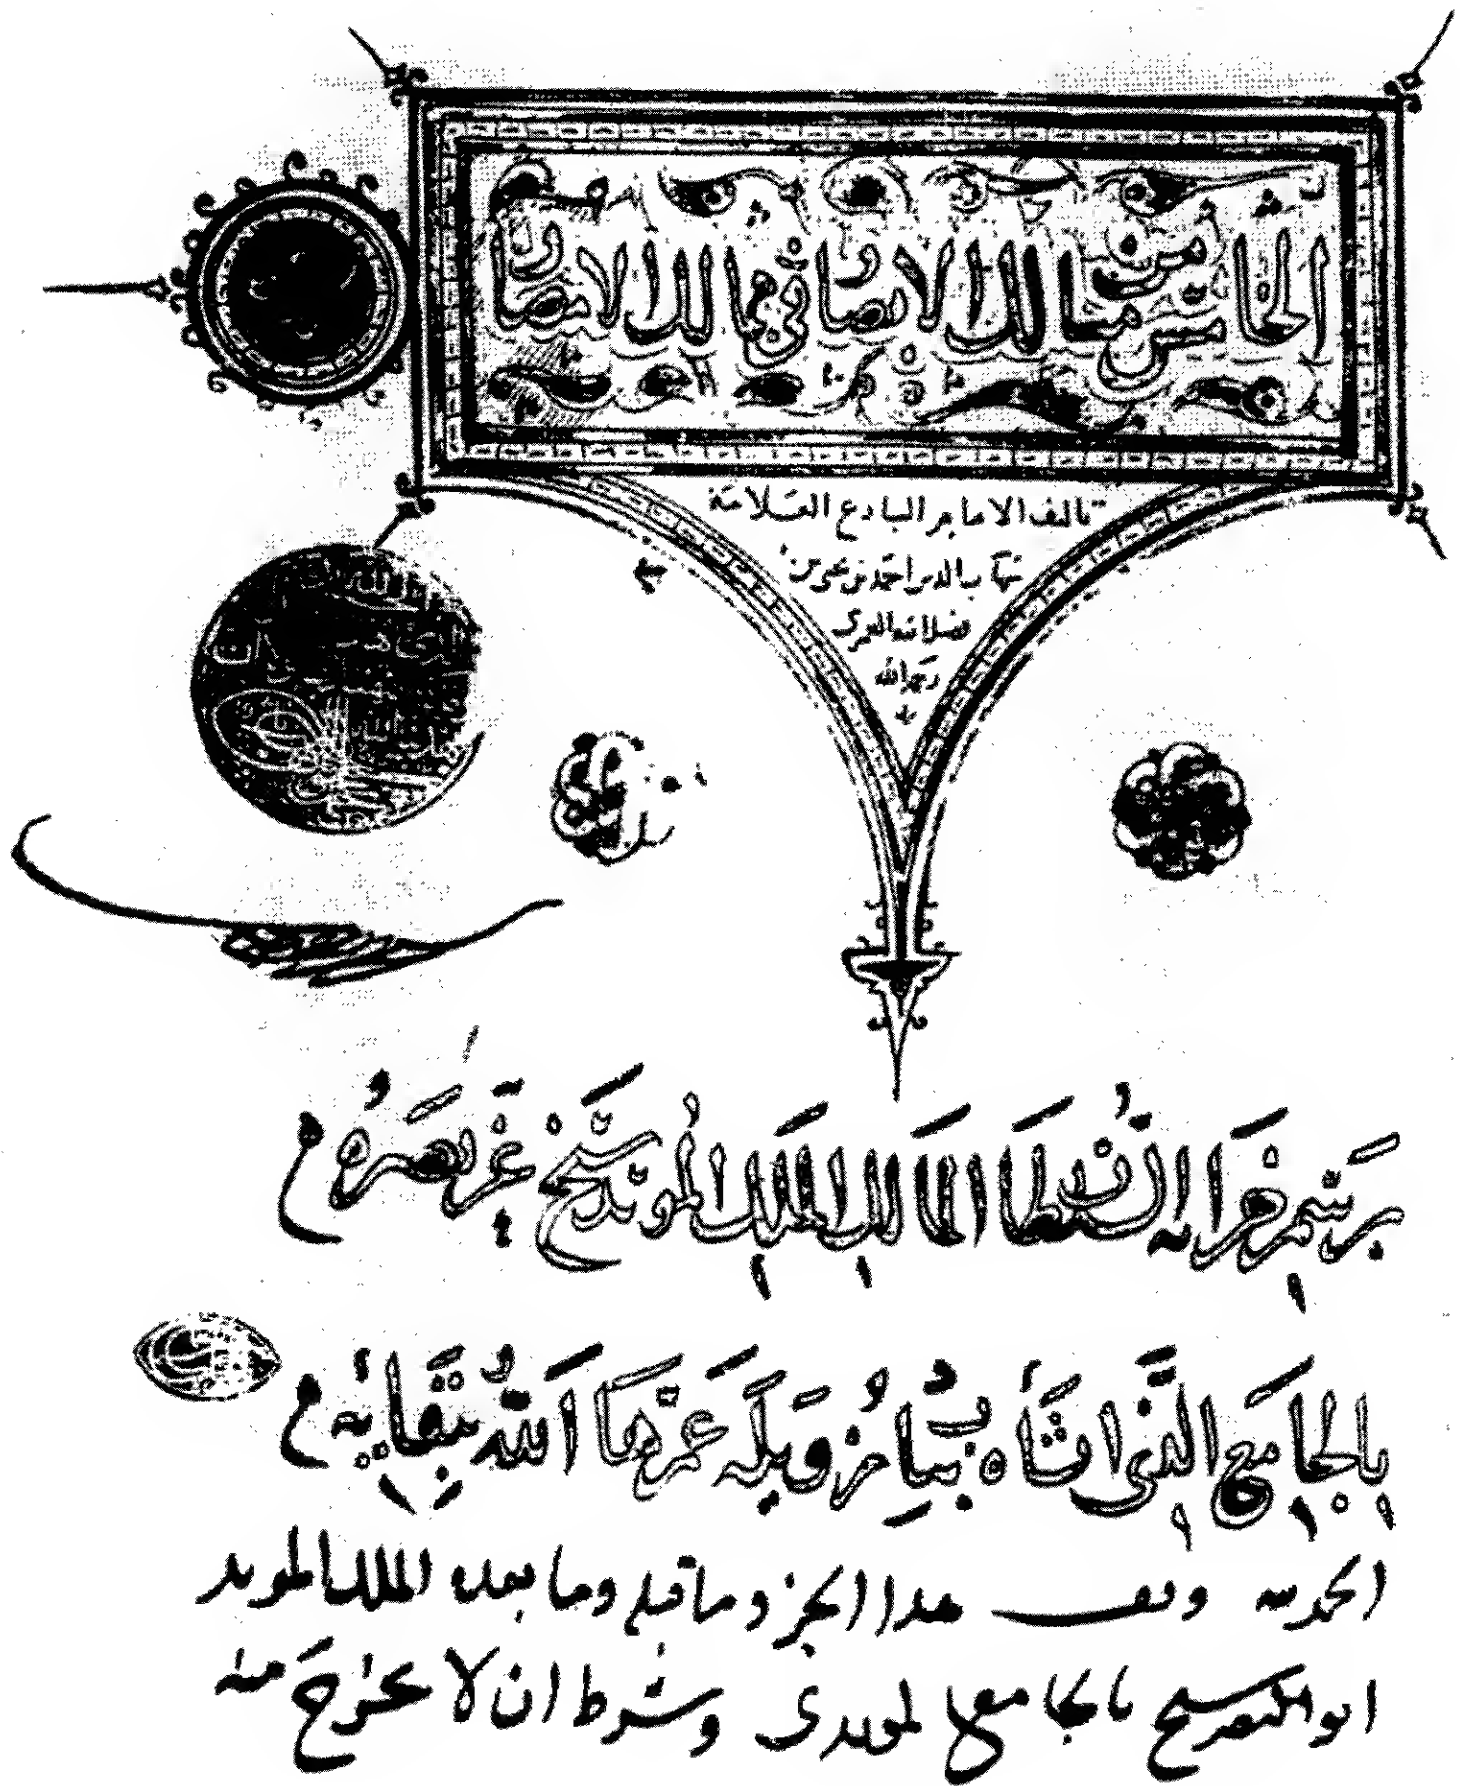 الخامس من مسالك الابصار في ممالك الامصار
تاليف الامام البارع العلامة
شهاب الدين احمد بن يحيى بن
فضل الله العمري
رحمه الله
برسم خزانه السلطان المالك الملك المويد شيخ عز نصره
بالجامع الذي انشاه بباب زويله عمرهما الله ببقايه
الحمد لله وقف هذا الجزء وما قبله وما بعده الملك المويد
ابو النصر شيخ بالجامع المويدى وشرط ان لا يخرج منه